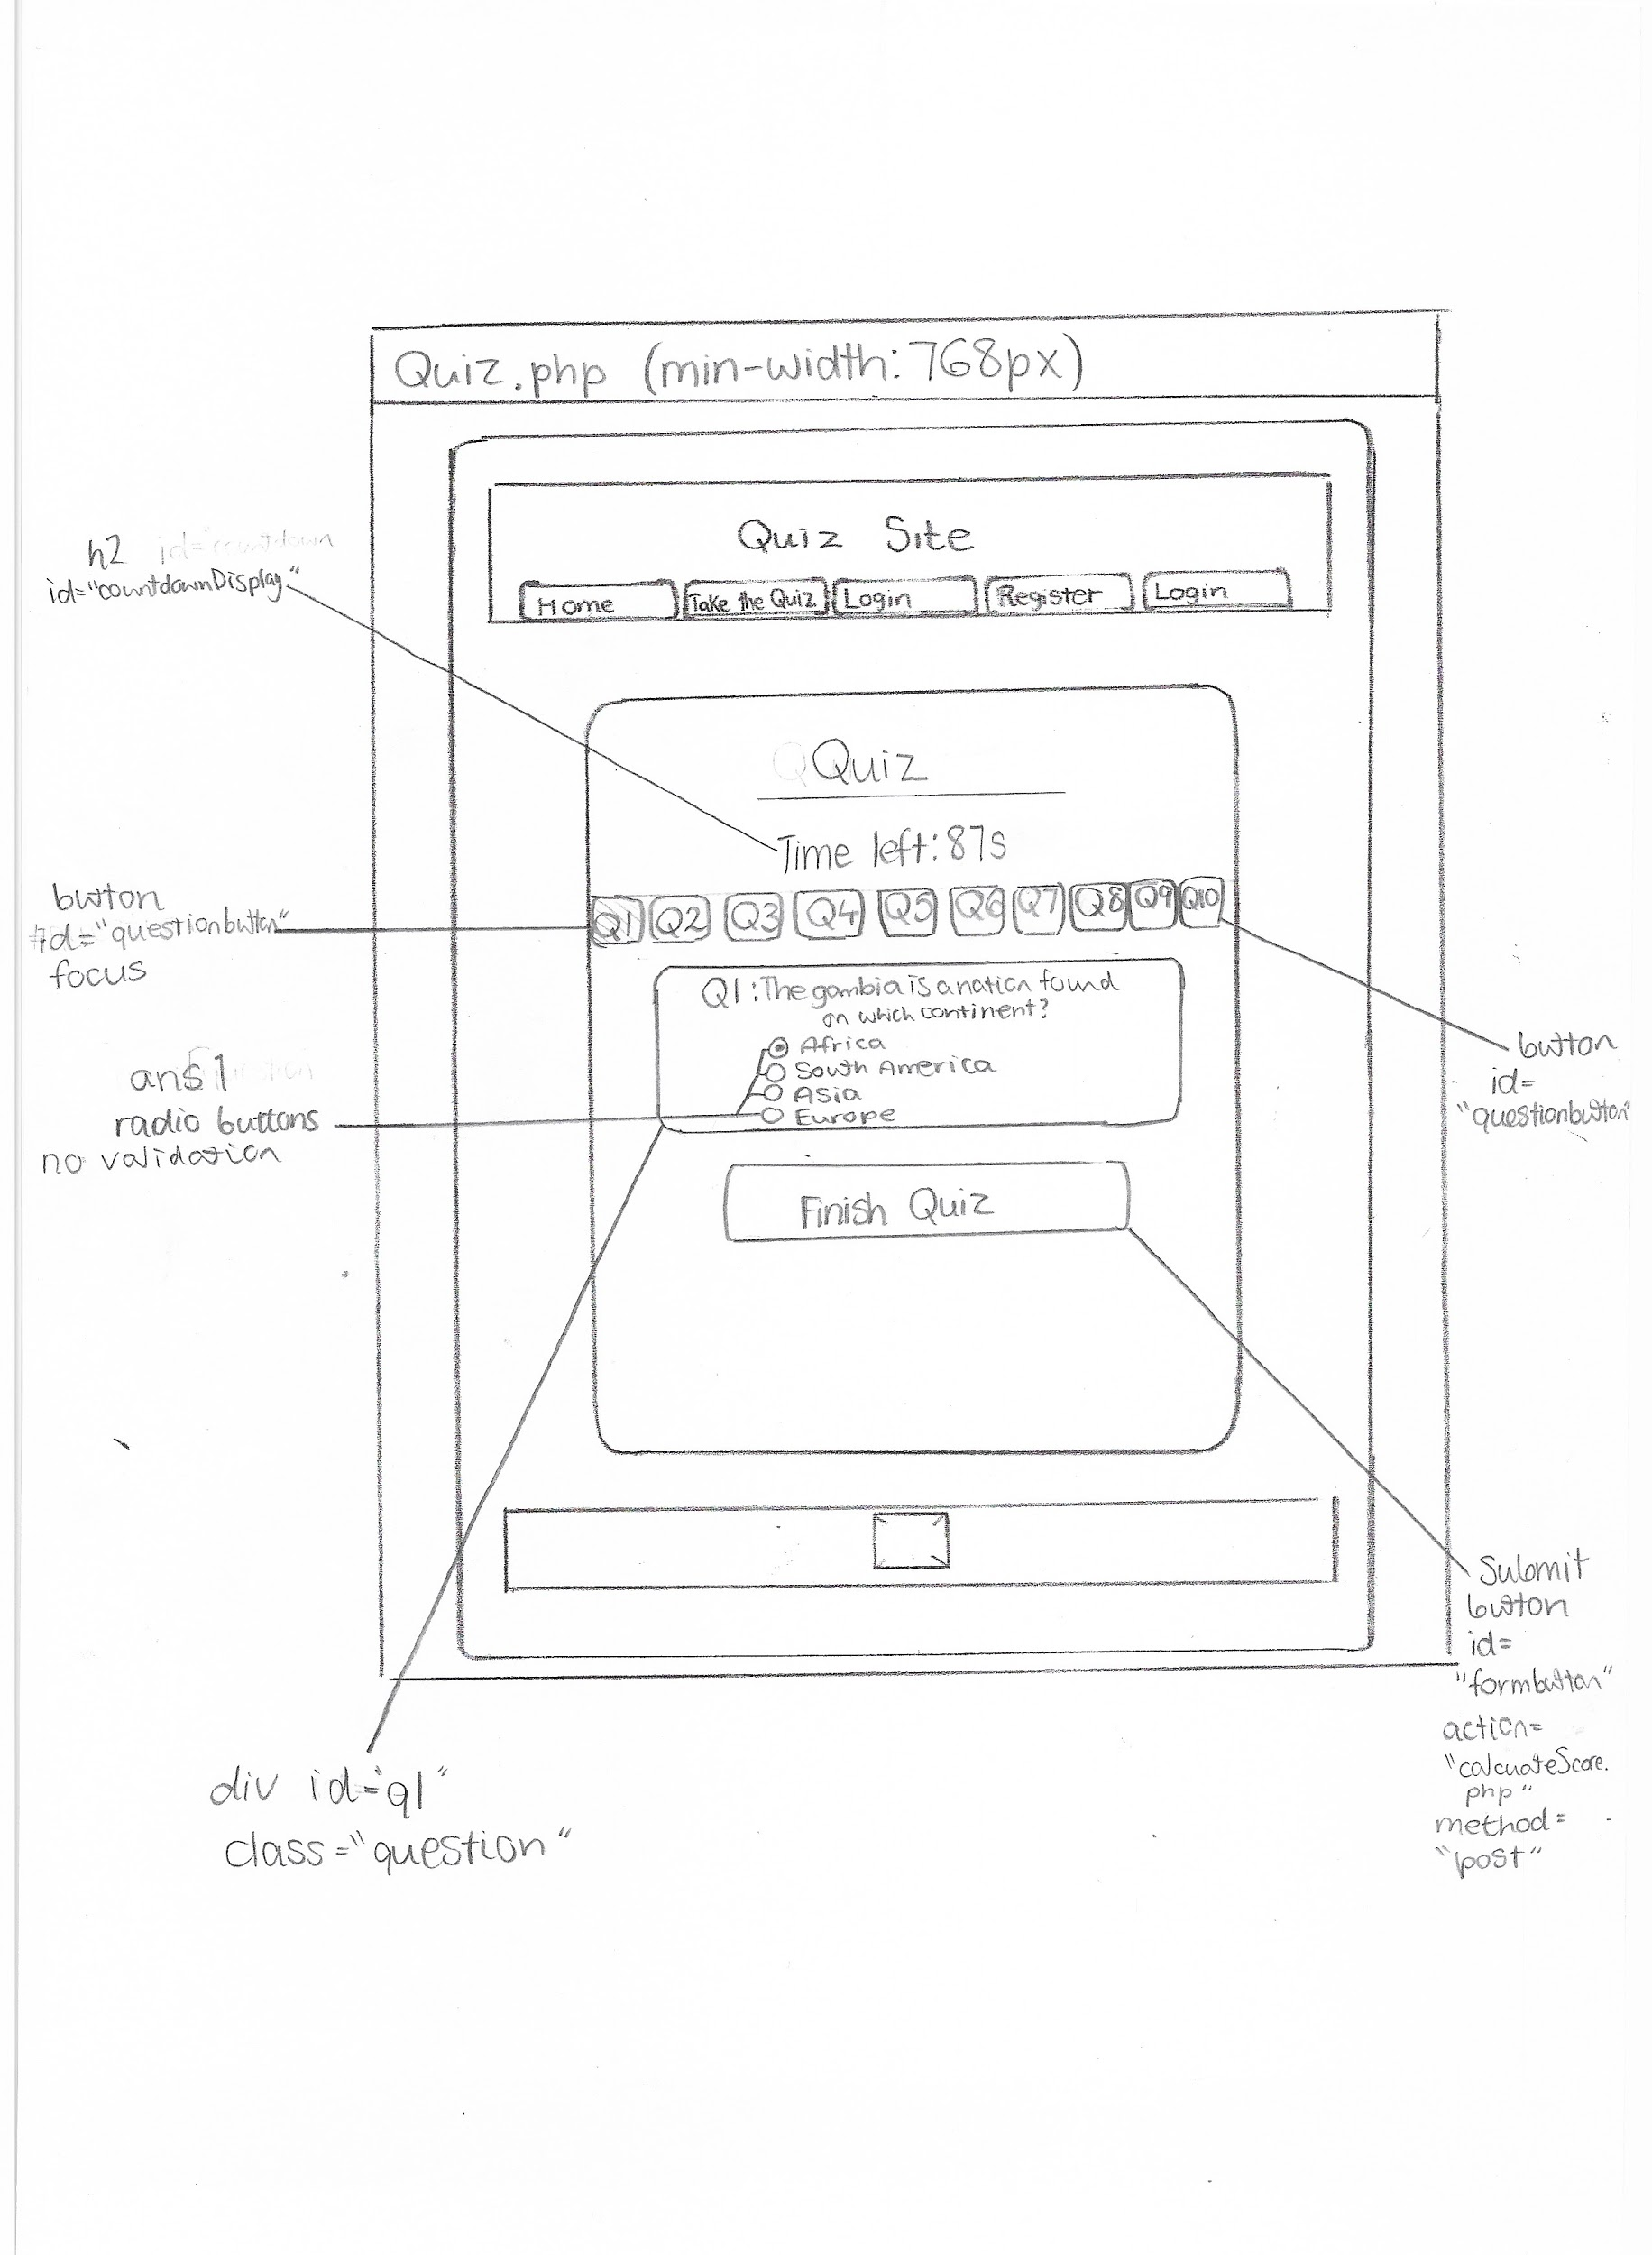 Quiz.php (min-width: 768px)
Quiz Site
Home
Take the Quiz
Login
Register
Login
h2
id="countdownDisplay"
Quiz
Time left: 87s
button
id="questionbutton"
focus
Q1 Q2 Q3 Q4 Q5 Q6 Q7 Q8 Q9 Q10
Q1: The gambia is a nation found
on which continent?
Africa
South America
Asia
Europe
ans1
radio buttons
no validation
button
id=
"questionbutton"
Finish Quiz
Submit
button
id=
"formbutton"
action=
"calcuateScore.
php"
method=
"post"
div id="q1"
class="question"